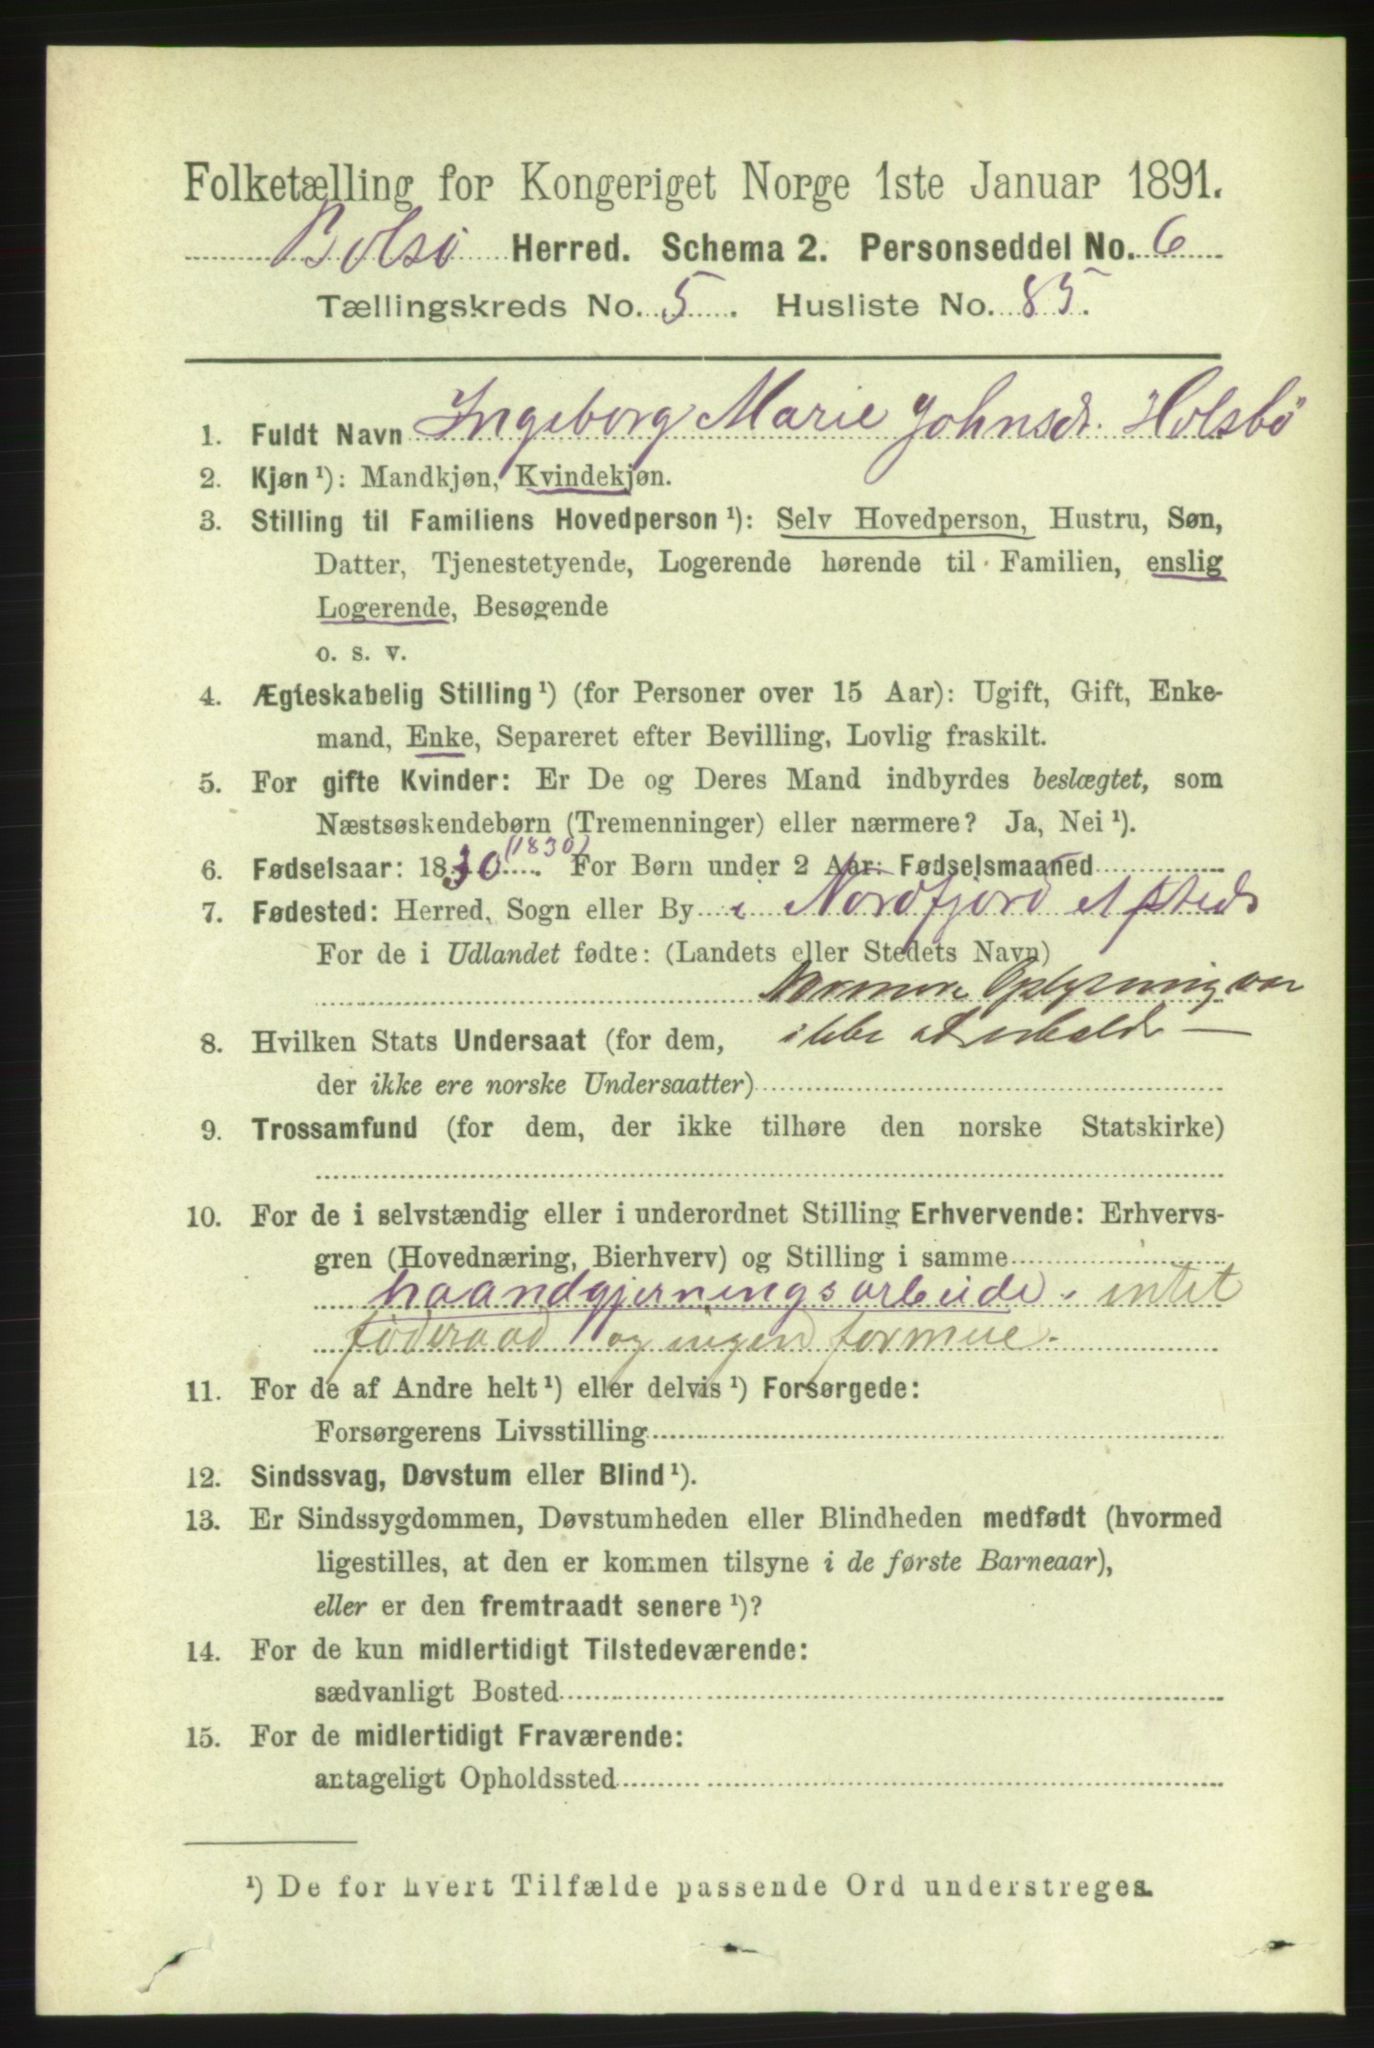 Folketælling for Kongeriget Norge 1ste Januar 1891.
Bolsö Herred. Schema 2. Personseddel No. 6
Tællingskreds No. 5. Husliste No. 85.
1. Fuldt Navn Ingeborg Marie Johnsdr. Holsbö
2. Kjøn ¹): Mandkjøn, Kvindekjøn.
3. Stilling til Familiens Hovedperson ¹): Selv Hovedperson, Hustru, Søn,
Datter, Tjenestetyende, Logerende hørende til Familien, enslig
Logerende, Besøgende
o. s. v.
4. Ægteskabelig Stilling ¹) (for Personer over 15 Aar): Ugift, Gift, Enke-
mand, Enke, Separeret efter Bevilling, Lovlig fraskilt.
5. For gifte Kvinder: Er De og Deres Mand indbyrdes beslægtet, som
Næstsøskendebørn (Tremenninger) eller nærmere? Ja, Nei ¹).
6. Fødselsaar: 1830 (1830). For Børn under 2 Aar: Fødselsmaaned
7. Fødested: Herred, Sogn eller By i Nordfjord etsteds
For de i Udlandet fødte: (Landets eller Stedets Navn)
Nærmere Oplysning var
8. Hvilken Stats Undersaat (for dem, ikke at erholde —
der ikke ere norske Undersaatter)
9. Trossamfund (for dem, der ikke tilhøre den norske Statskirke)
10. For de i selvstændig eller i underordnet Stilling Erhvervende: Erhvervs-
gren (Hovednæring, Bierhverv) og Stilling i samme
haandgjerningsarbeide. intet
föderaad og ingen formue.
11. For de af Andre helt ¹) eller delvis ¹) Forsørgede:
Forsørgerens Livsstilling
12. Sindssvag, Døvstum eller Blind ¹).
13. Er Sindssygdommen, Døvstumheden eller Blindheden medfødt (hvormed
ligestilles, at den er kommen tilsyne i de første Barneaar),
eller er den fremtraadt senere ¹)?
14. For de kun midlertidigt Tilstedeværende:
sædvanligt Bosted
15. For de midlertidigt Fraværende:
antageligt Opholdssted
¹) De for hvert Tilfælde passende Ord understreges.